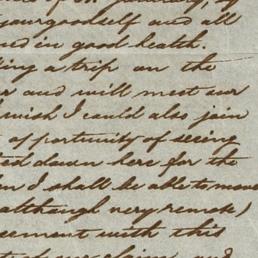 yourgoodself and all
in good health.
a trip on the
and will meet our
wish I could also join
opportunity of seeing
down here for the
I shall be able to move
although very remote)
with this
claim, and